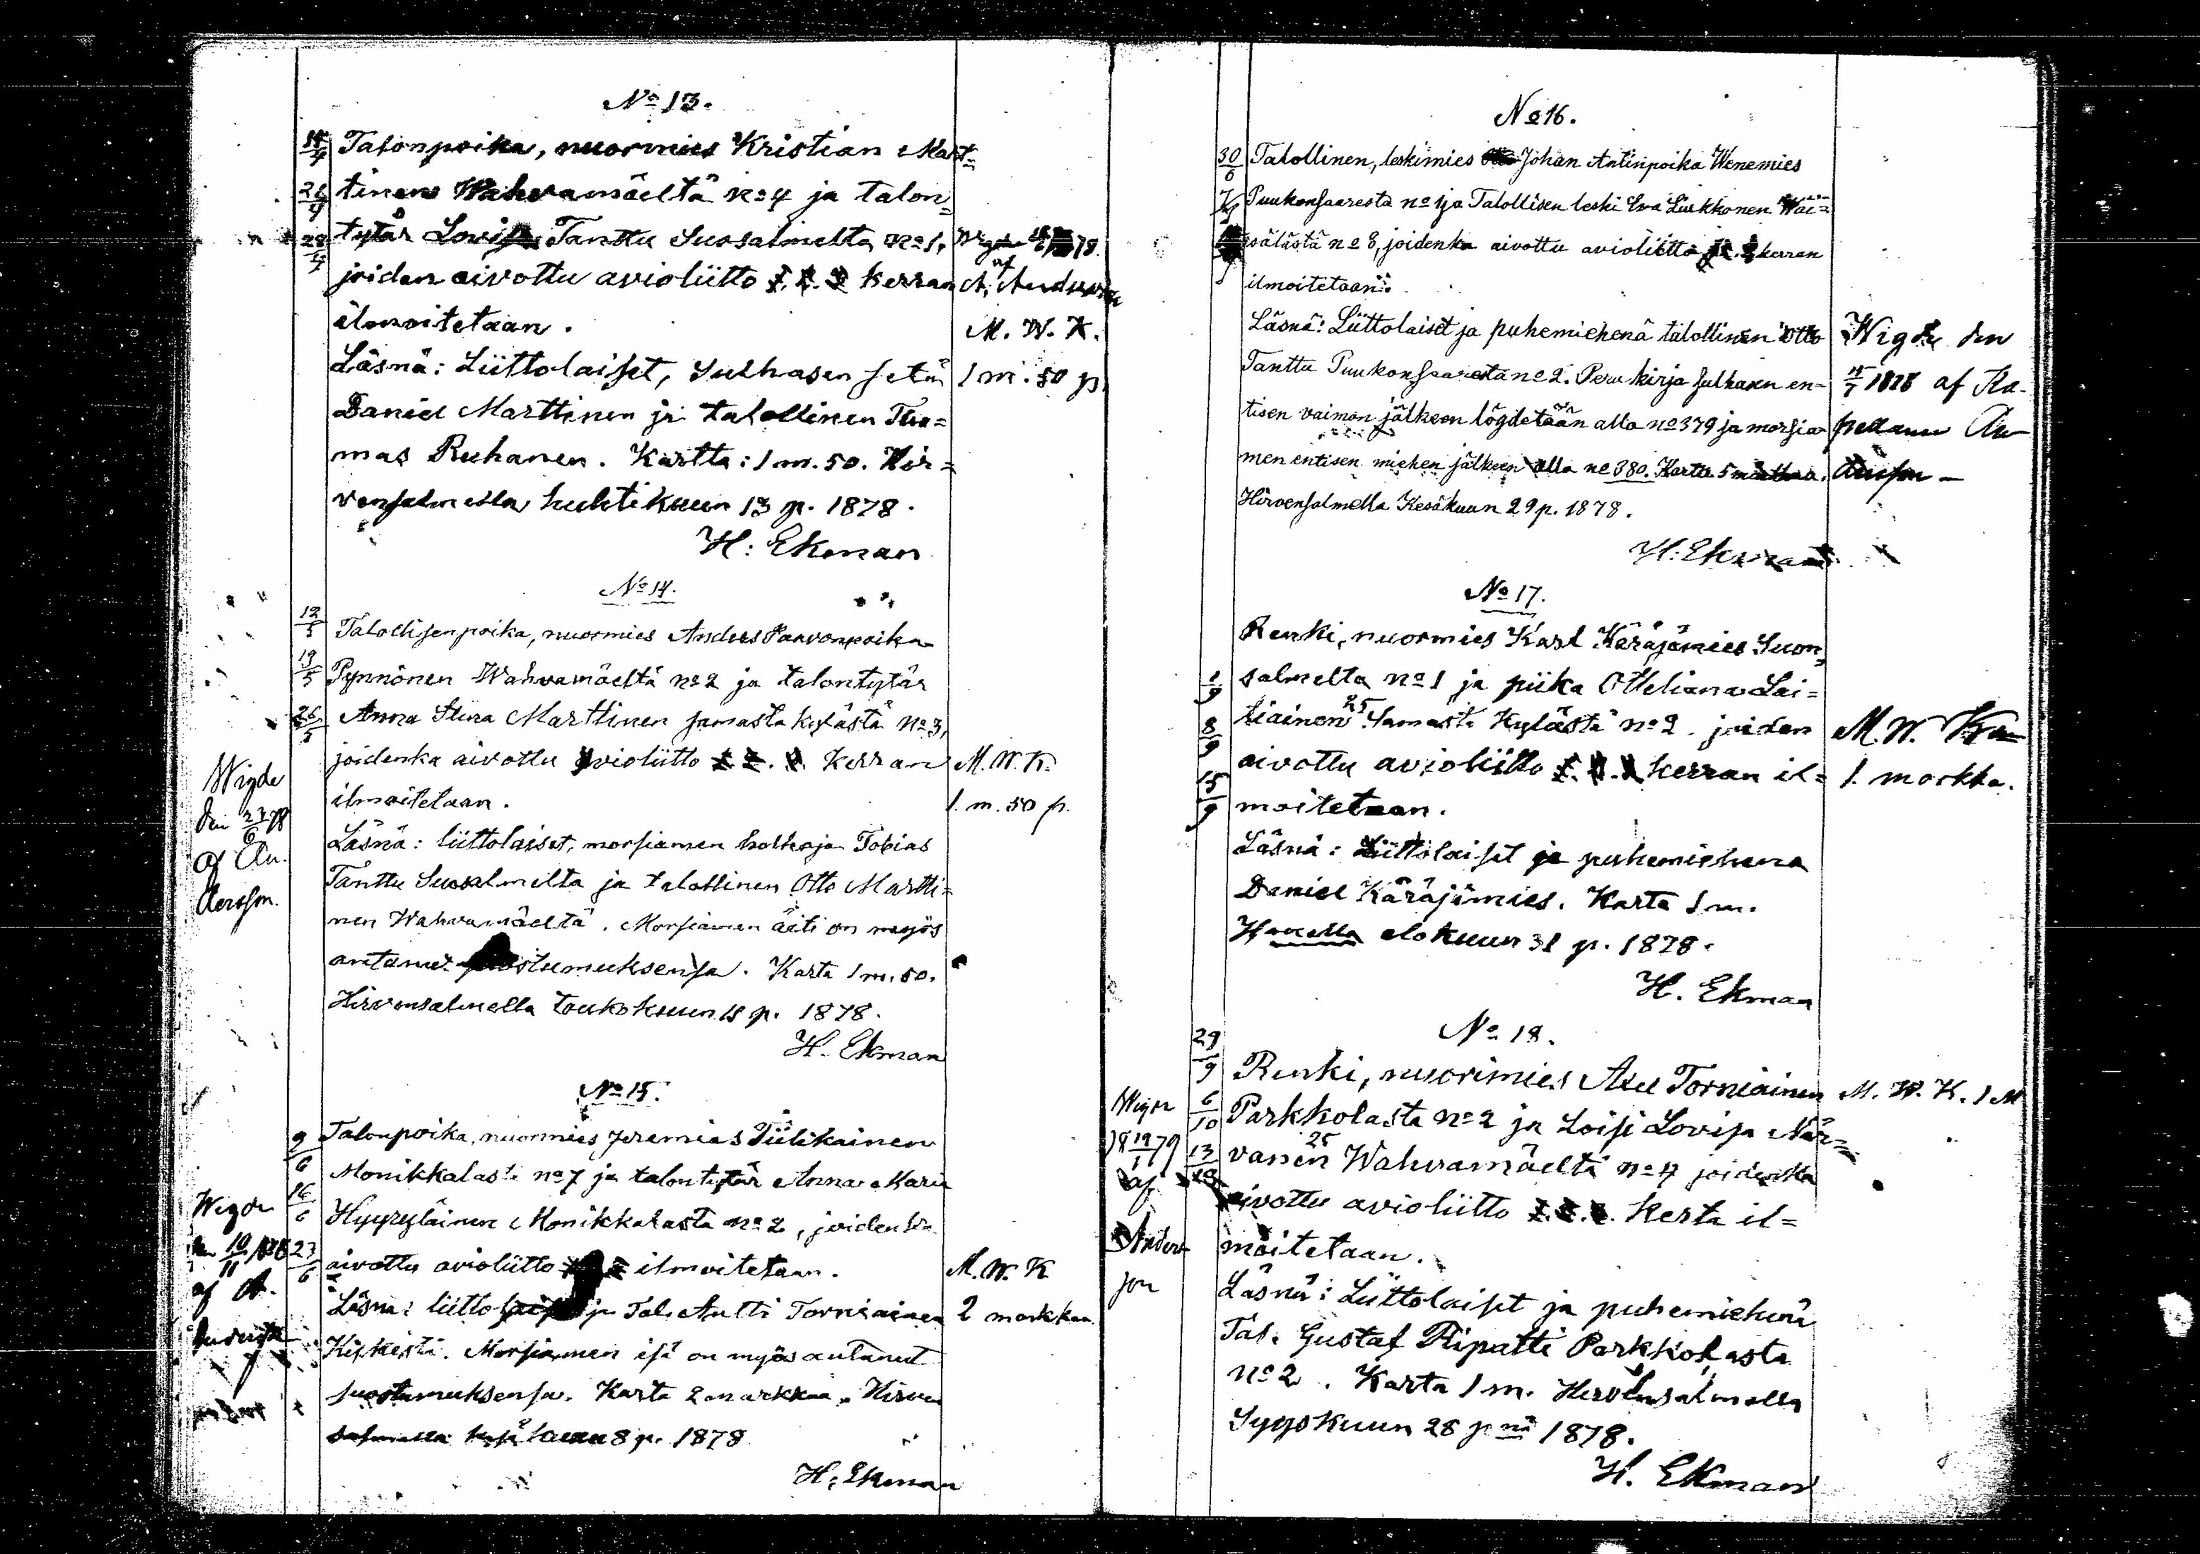 No 13.
14/4 Talonpoika, nuormies Kristian Mart=
21/4 tinen Wahvamäeltä no 4 ja talon=
28/4 tytär Lovisa Tanttu Suosalmelta no 1,
joiden aivottu avioliitto 1. 2. 3 kerran
ilmoitetaan.
Läsnä: Liittolaiset, Sulhasen setä
Daniel Marttinen ja talollinen Tho=
mas Ruhanen. Kartta: 1 m. 50. Hir=
vensalmella huhtikuun 13 p. 1878.
H: Ekman
Wigde 78.
af
A. Andersson
M. W. K.
1 m. 50 p
No 14.
12/5 Talollisenpoika, nuormies Anders Paavonpoika
19/5 Pynnönen Wahvamäeltä no 2 ja talontytär
26/5 Anna Stina Marttinen samasta kylästä no 3,
joidenka aivottu avioliitto 1. 2. 3. kerran
ilmoitetaan.
Läsnä: liittolaiset, morsiamen holhoja Tobias
Tanttu Suosalmelta ja talollinen Otto Martti=
nen Wahvamäeltä. Morsiamen äiti on myös
antanut suostumuksensa. Karta 1 m. 50.
Hirvensalmella toukokuun 11 p. 1878.
H. Ekman
M. W. K.
1. m. 50 p.
Wigde
den 78
af An
dersson.
No 15.
9/6 Talonpoika, nuormies Jeremias Tiilikainen
Monikkalasta no 7 ja talontytär Anna Maria
16/6 Hyyryläinen Monikkalasta no 2, joidenka
23/6 aivottu avioliitto ilmoitetaan.
Läsnä: liittolaiset ja Tal. Antti Torniainen
Kiskistä. Morsiamen isä on myös antanut
suostumuksensa. Karta 2 markkaa. Hirven
salmella kesäkuun 8 p. 1878
H. Ekman
M. W. K
2 markkaa.
Wigde
den 10/11 1878
af A.
Andersson
No 16.
30/6 Talollinen, leskimies Johan Antinpoika Wenemies
7/7 Puukonsaaresta no 1 ja Talollisen leski Eva Liukkonen Wäi=
sälästä no 8, joidenka aivottu avioliitto kerran
ilmoitetaan.
Läsnä: Liittolaiset ja puhemiehenä talollinen Otto
Tanttu Puukonsaaresta no 2. Perukirja sulhasen en=
tisen vaimon jälkeen löydetään alla no 379 ja morsia=
men entisen miehen jälkeen alla no 380. Karta 5 markkaa.
Hirvensalmella Kesäkuun 29 p. 1878.
H. Ekman
Wigde den
1878 af Ka-
pellanen An
dersson -
No 17.
Renki, nuormies Karl Käräjämies Suon=
1/9 salmelta no 1 ja piika Otteliana Lai=
8/9 tiainen 25 Samasta Kylästä no 2. joiden
15/9 aivottu avioliitto 1. 2. 3 kerran il=
moitetaan.
Läsnä: Liittolaiset ja puhemiehenä
Daniel Käräjämies. Karta 1 m.
elokuun 31 p. 1878.
H. Ekman
M. W. Ka=
1. markka.
No 18.
29/9 Renki, nuorimies Axel Torniainen
6/10 Parkkolasta no 2 ja Loisi Lovisa När=
13/10 vanen 25 Wahvamäeltä no 4 joidenka
aivottu avioliitto 1. 2. 3. Kerta il=
moitetaan.
Läsnä: Liittolaiset ja puhemiehenä
Tal. Gustaf Ripatti Parkkolasta
no 2. Karta 1 m. Hirvensalmella
Syyskuun 28 p nä 1878.
H. Ekman
M. W. K. 1 M
Wigde
19/1 79
af
Anders
son